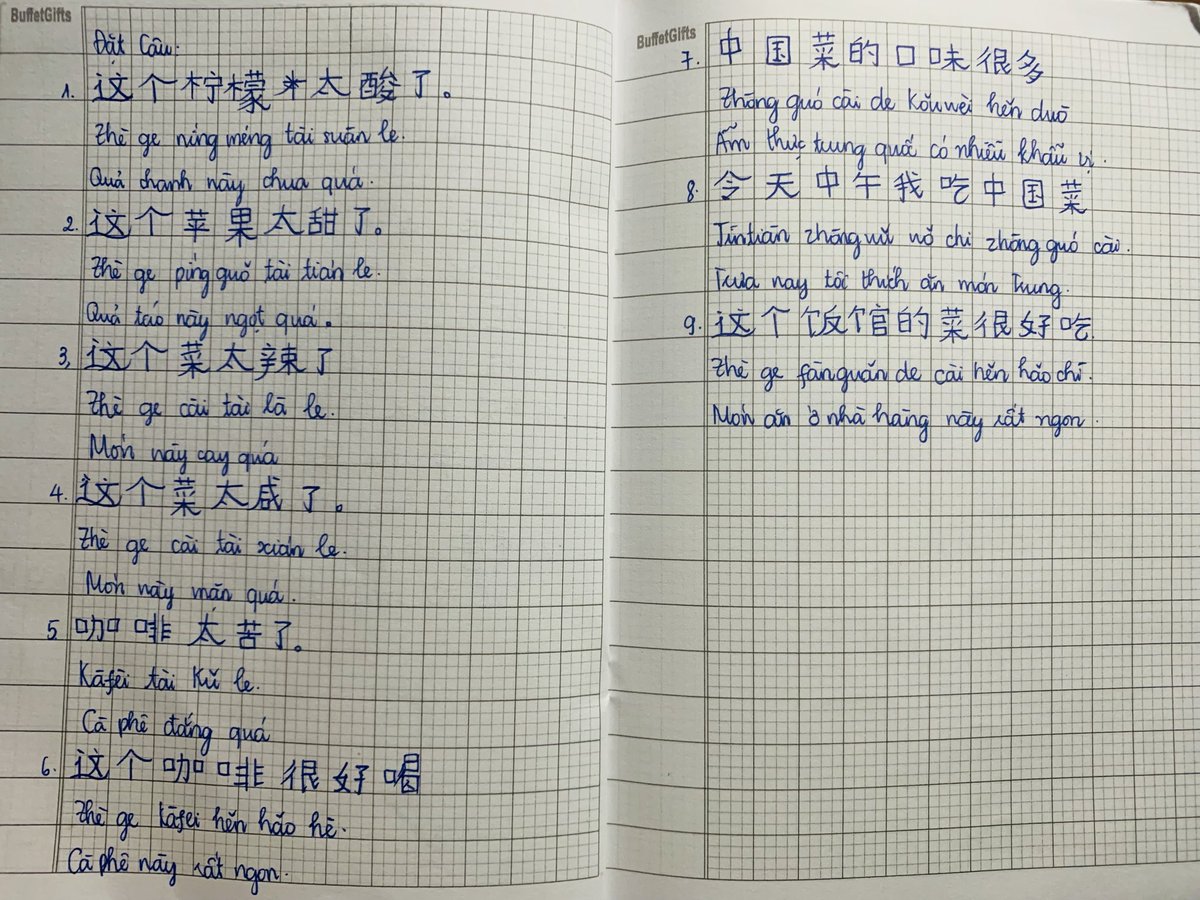 BuffetGifts
Đặt Câu:
1. 这个柠檬太酸了。
Zhè ge níng méng tài suān le.
Quả chanh này chua quá.
2. 这个苹果太甜了。
Zhè ge píng guǒ tài tián le.
Quả táo này ngọt quá.
3, 这个菜太辣了
Zhè ge cài tài là le.
Món này cay quá
4. 这个菜太咸了。
Zhè ge cài tài xián le.
Món này mặn quá.
5 咖啡太苦了。
Kāfēi tài Kǔ le.
Cà phê đắng quá
6. 这个咖啡很好喝
Zhè ge kāfei hěn hǎo hē.
Cà phê này rất ngon.
BuffetGifts
7. 中国菜的口味很多
Zhōng guó cài de Kǒuwèi hěn duō
Ẩm thực trung quố có nhiều khẩu vị.
8. 今天中午我吃中国菜
Jīntiān zhōngwǔ wǒ chi zhōng guó cài.
Trưa nay tôi thích ăn món Trung.
9. 这个饭馆的菜很好吃.
Zhè ge fànguǎn de cài hěn hǎo chī.
Món ăn ở nhà hàng này rất ngon.